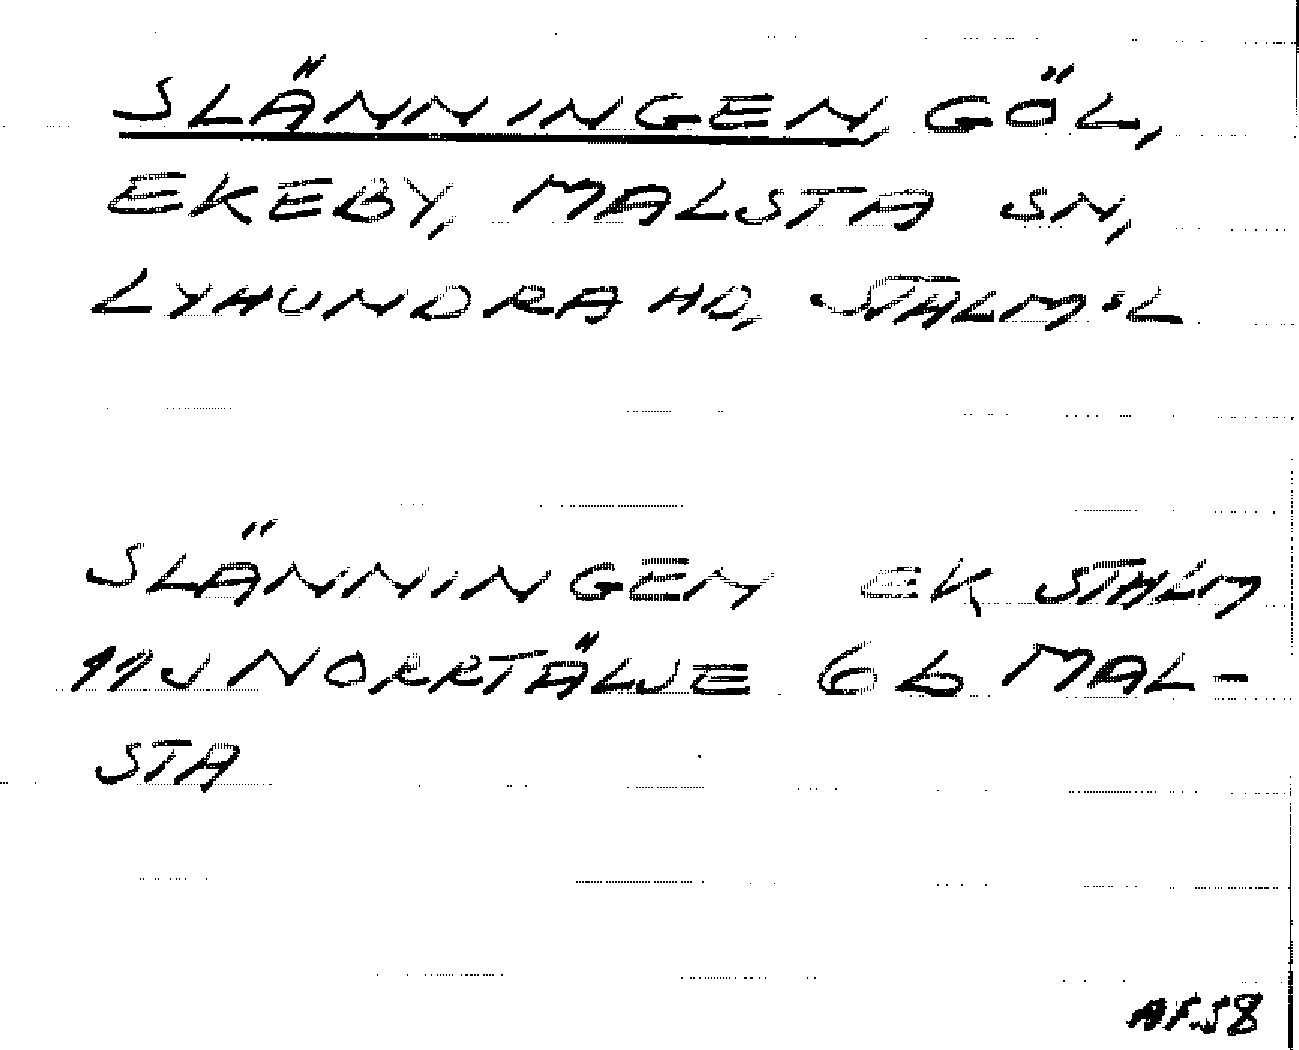 SLÄNNINGEN, GÖL,
EKEBY, MALSTA SN,
LYHUNDRA HD, STHLM:L
SLÄNNINGEN EK STHLM
11J NORRTÄLJE 6b MAL-
STA
AF.58